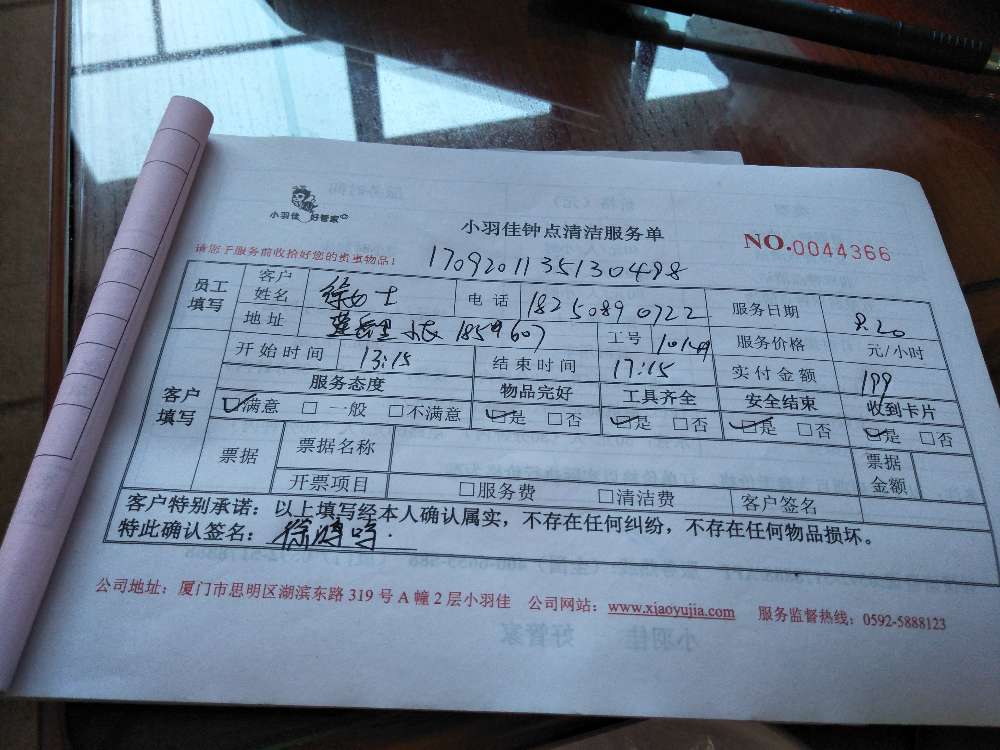 小羽佳 好管家
小羽佳钟点清洁服务单
NO.0044366
请您于服务前收拾好您的贵重物品！
1709201135130498
员工填写 客户姓名 徐女士 电话 18250890722 服务日期 8.20
地址 1859607 工号 服务价格 元/小时
开始时间 13:15 结束时间 17:15 实付金额 199
客户填写 服务态度 物品完好 工具齐全 安全结束 收到卡片
☑满意 □一般 □不满意 ☑是 □否 ☑是 □否 ☑是 □否 ☑是 □否
票据 票据名称 票据金额
开票项目 □服务费 □清洁费 客户签名
客户特别承诺：以上填写经本人确认属实，不存在任何纠纷，不存在任何物品损坏。
特此确认签名：徐鸿鸣
公司地址：厦门市思明区湖滨东路 319 号 A 幢 2 层小羽佳 公司网站：www.xiaoyujia.com 服务监督热线：0592-5888123